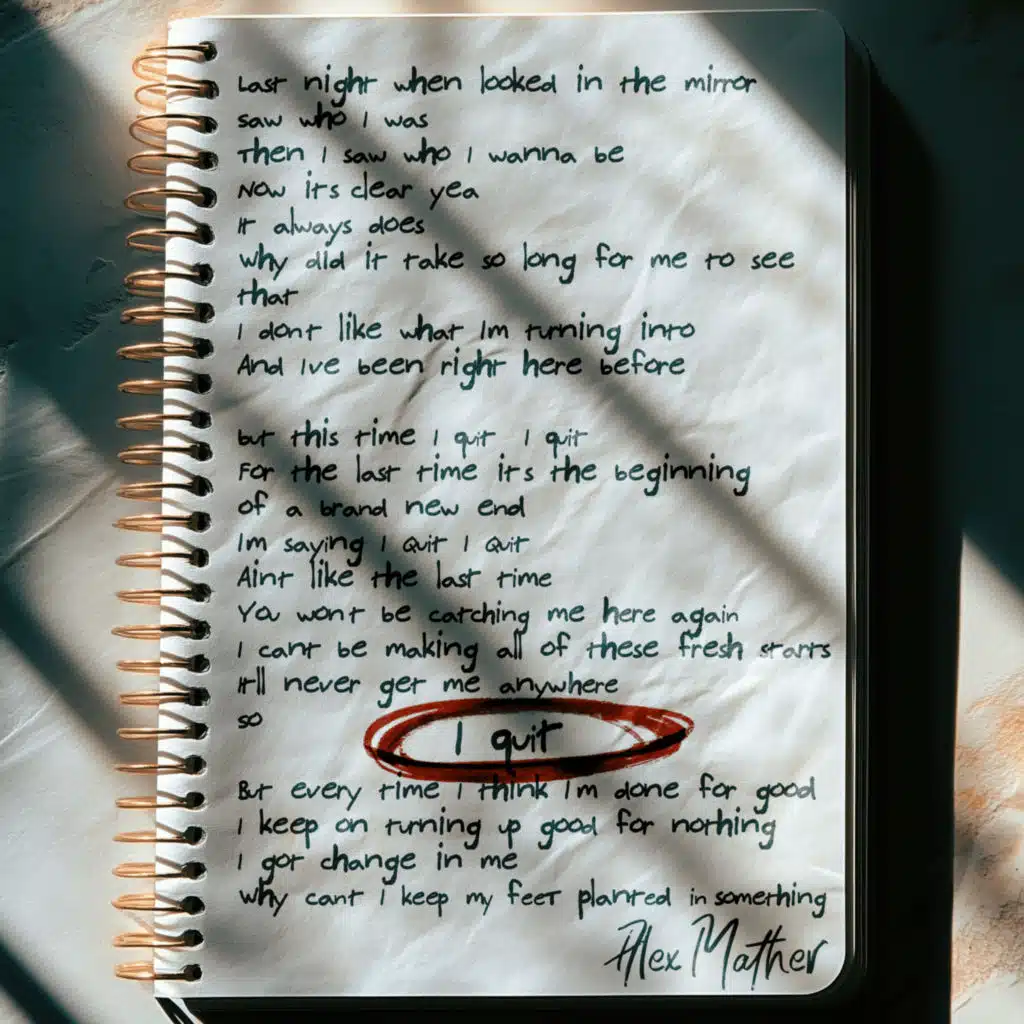 Last night when looked in the mirror
saw who I was
Then I saw who I wanna be
Now its clear yea
It always does
why did it take so long for me to see
that
I dont like what Im turning into
And Ive been right here before
but this time I quit I quit
For the last time its the beginning
of a brand new end
Im saying I Quit I Quit
Aint like the last time
You wont be catching me here again
I cant be making all of these fresh starts
It'll never get me anywhere
so
I quit
But every time I think Im done for good
I keep on turning up good for nothing
I got change in me
why cant I keep my feet planted in something
Alex Mather